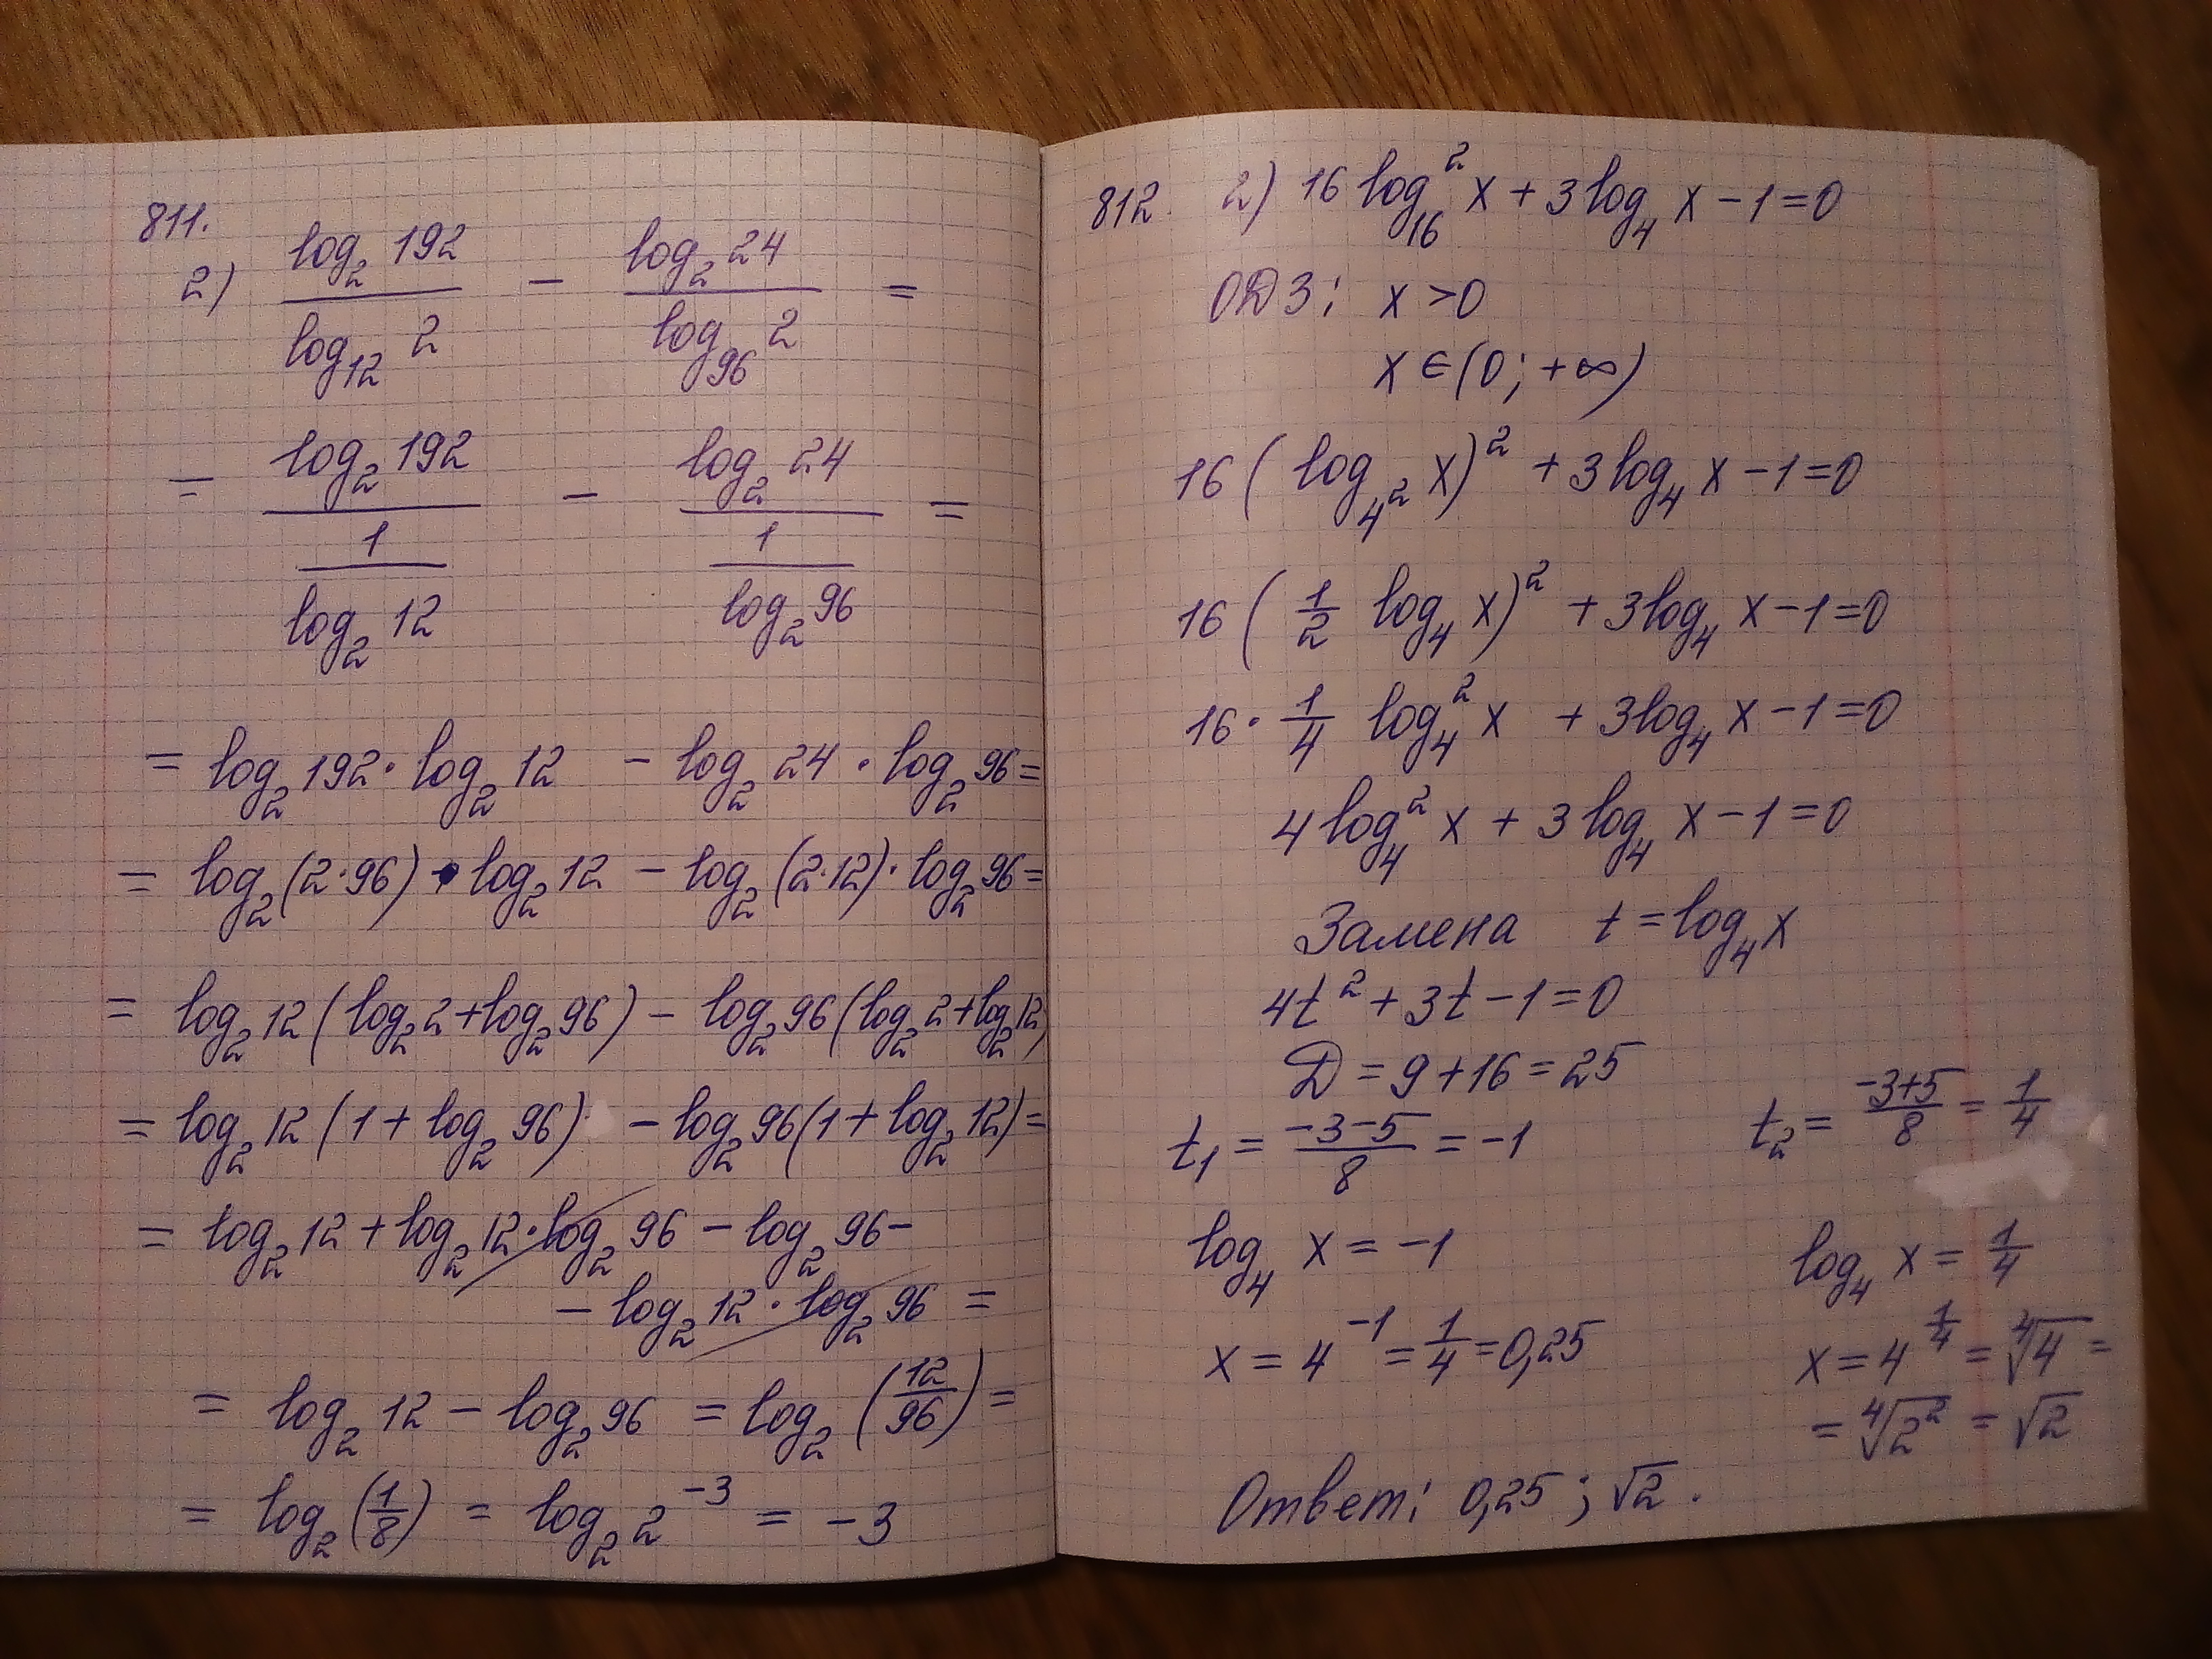 811.
2) log₂ 192 / log₁₂ 2 − log₂ 24 / log₉₆ 2 =
= log₂ 192 / (1 / log₂ 12) − log₂ 24 / (1 / log₂ 96) =
= log₂ 192 · log₂ 12 − log₂ 24 · log₂ 96 =
= log₂ (2·96) · log₂ 12 − log₂ (2·12) · log₂ 96 =
= log₂ 12 (log₂ 2 + log₂ 96) − log₂ 96 (log₂ 2 + log₂ 12)
= log₂ 12 (1 + log₂ 96) − log₂ 96 (1 + log₂ 12) =
= log₂ 12 + log₂ 12 · log₂ 96 − log₂ 96 −
− log₂ 12 · log₂ 96 =
= log₂ 12 − log₂ 96 = log₂ (12/96) =
= log₂ (1/8) = log₂ 2⁻³ = −3
812. 2) 16 log²₁₆ x + 3 log₄ x − 1 = 0
ОДЗ: x > 0
x ∈ (0; +∞)
16 (log_{4²} x)² + 3 log₄ x − 1 = 0
16 (1/2 log₄ x)² + 3 log₄ x − 1 = 0
16 · 1/4 log²₄ x + 3 log₄ x − 1 = 0
4 log²₄ x + 3 log₄ x − 1 = 0
Замена t = log₄ x
4t² + 3t − 1 = 0
D = 9 + 16 = 25
t₁ = (−3−5)/8 = −1
t₂ = (−3+5)/8 = 1/4
log₄ x = −1
log₄ x = 1/4
x = 4⁻¹ = 1/4 = 0,25
x = 4^{1/4} = ⁴√4 =
= ⁴√2² = √2
Ответ: 0,25; √2.